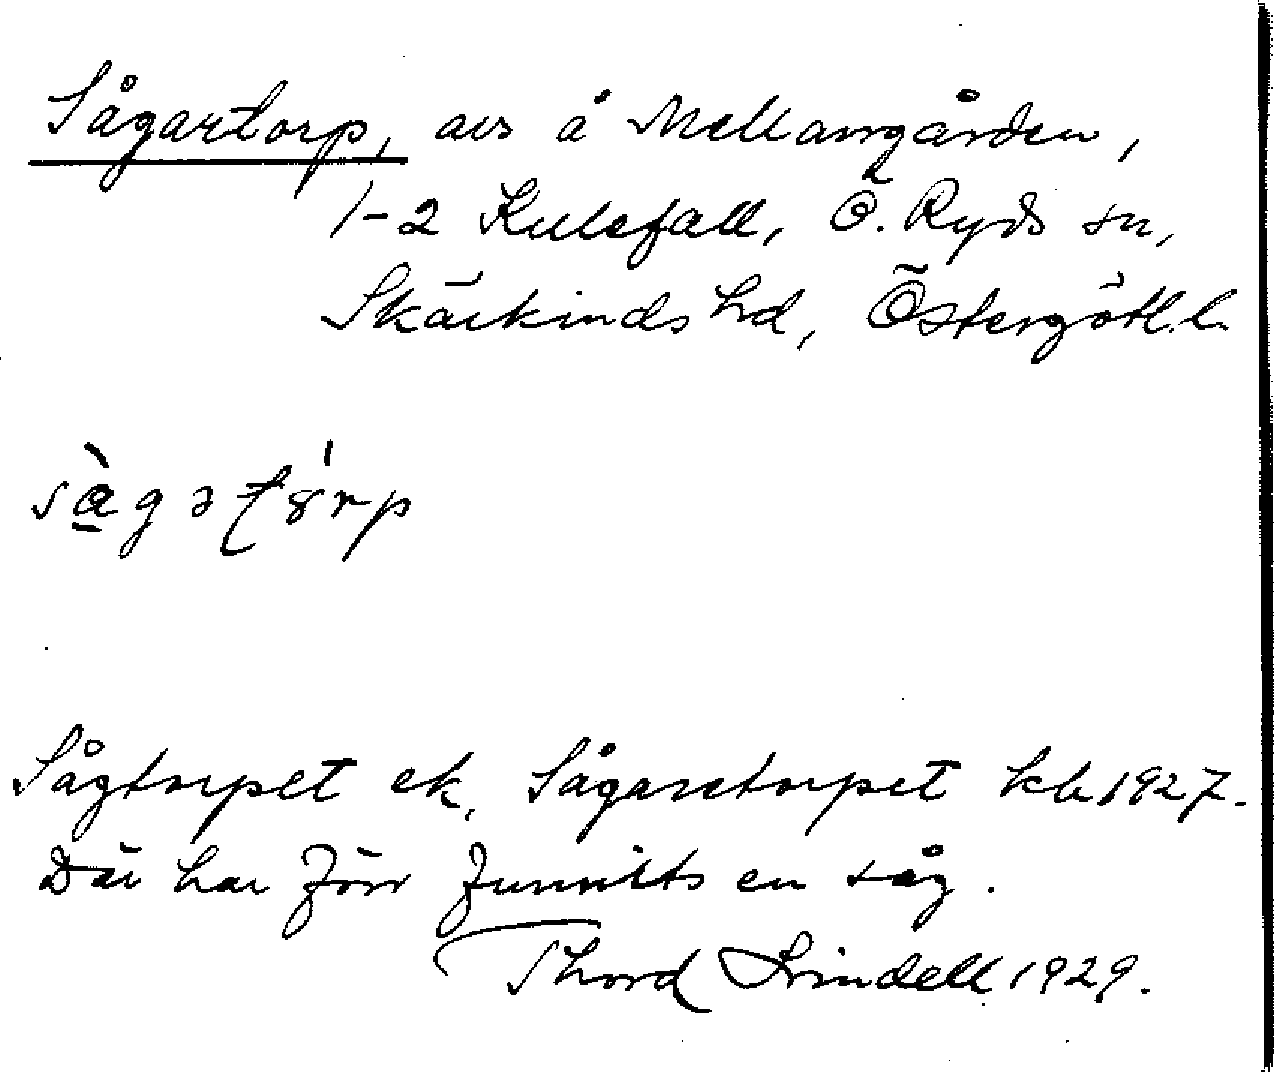 Sågartorp, avs å Mellangården,
1-2 Kulefall, Ö. Ryds sn,
Skärkinds hd, Östergötl. l.
Sågtorpet ek, Sågaretorpet kb 1927.
Där har förr funnits en såg.
Thord Lindell 1929.